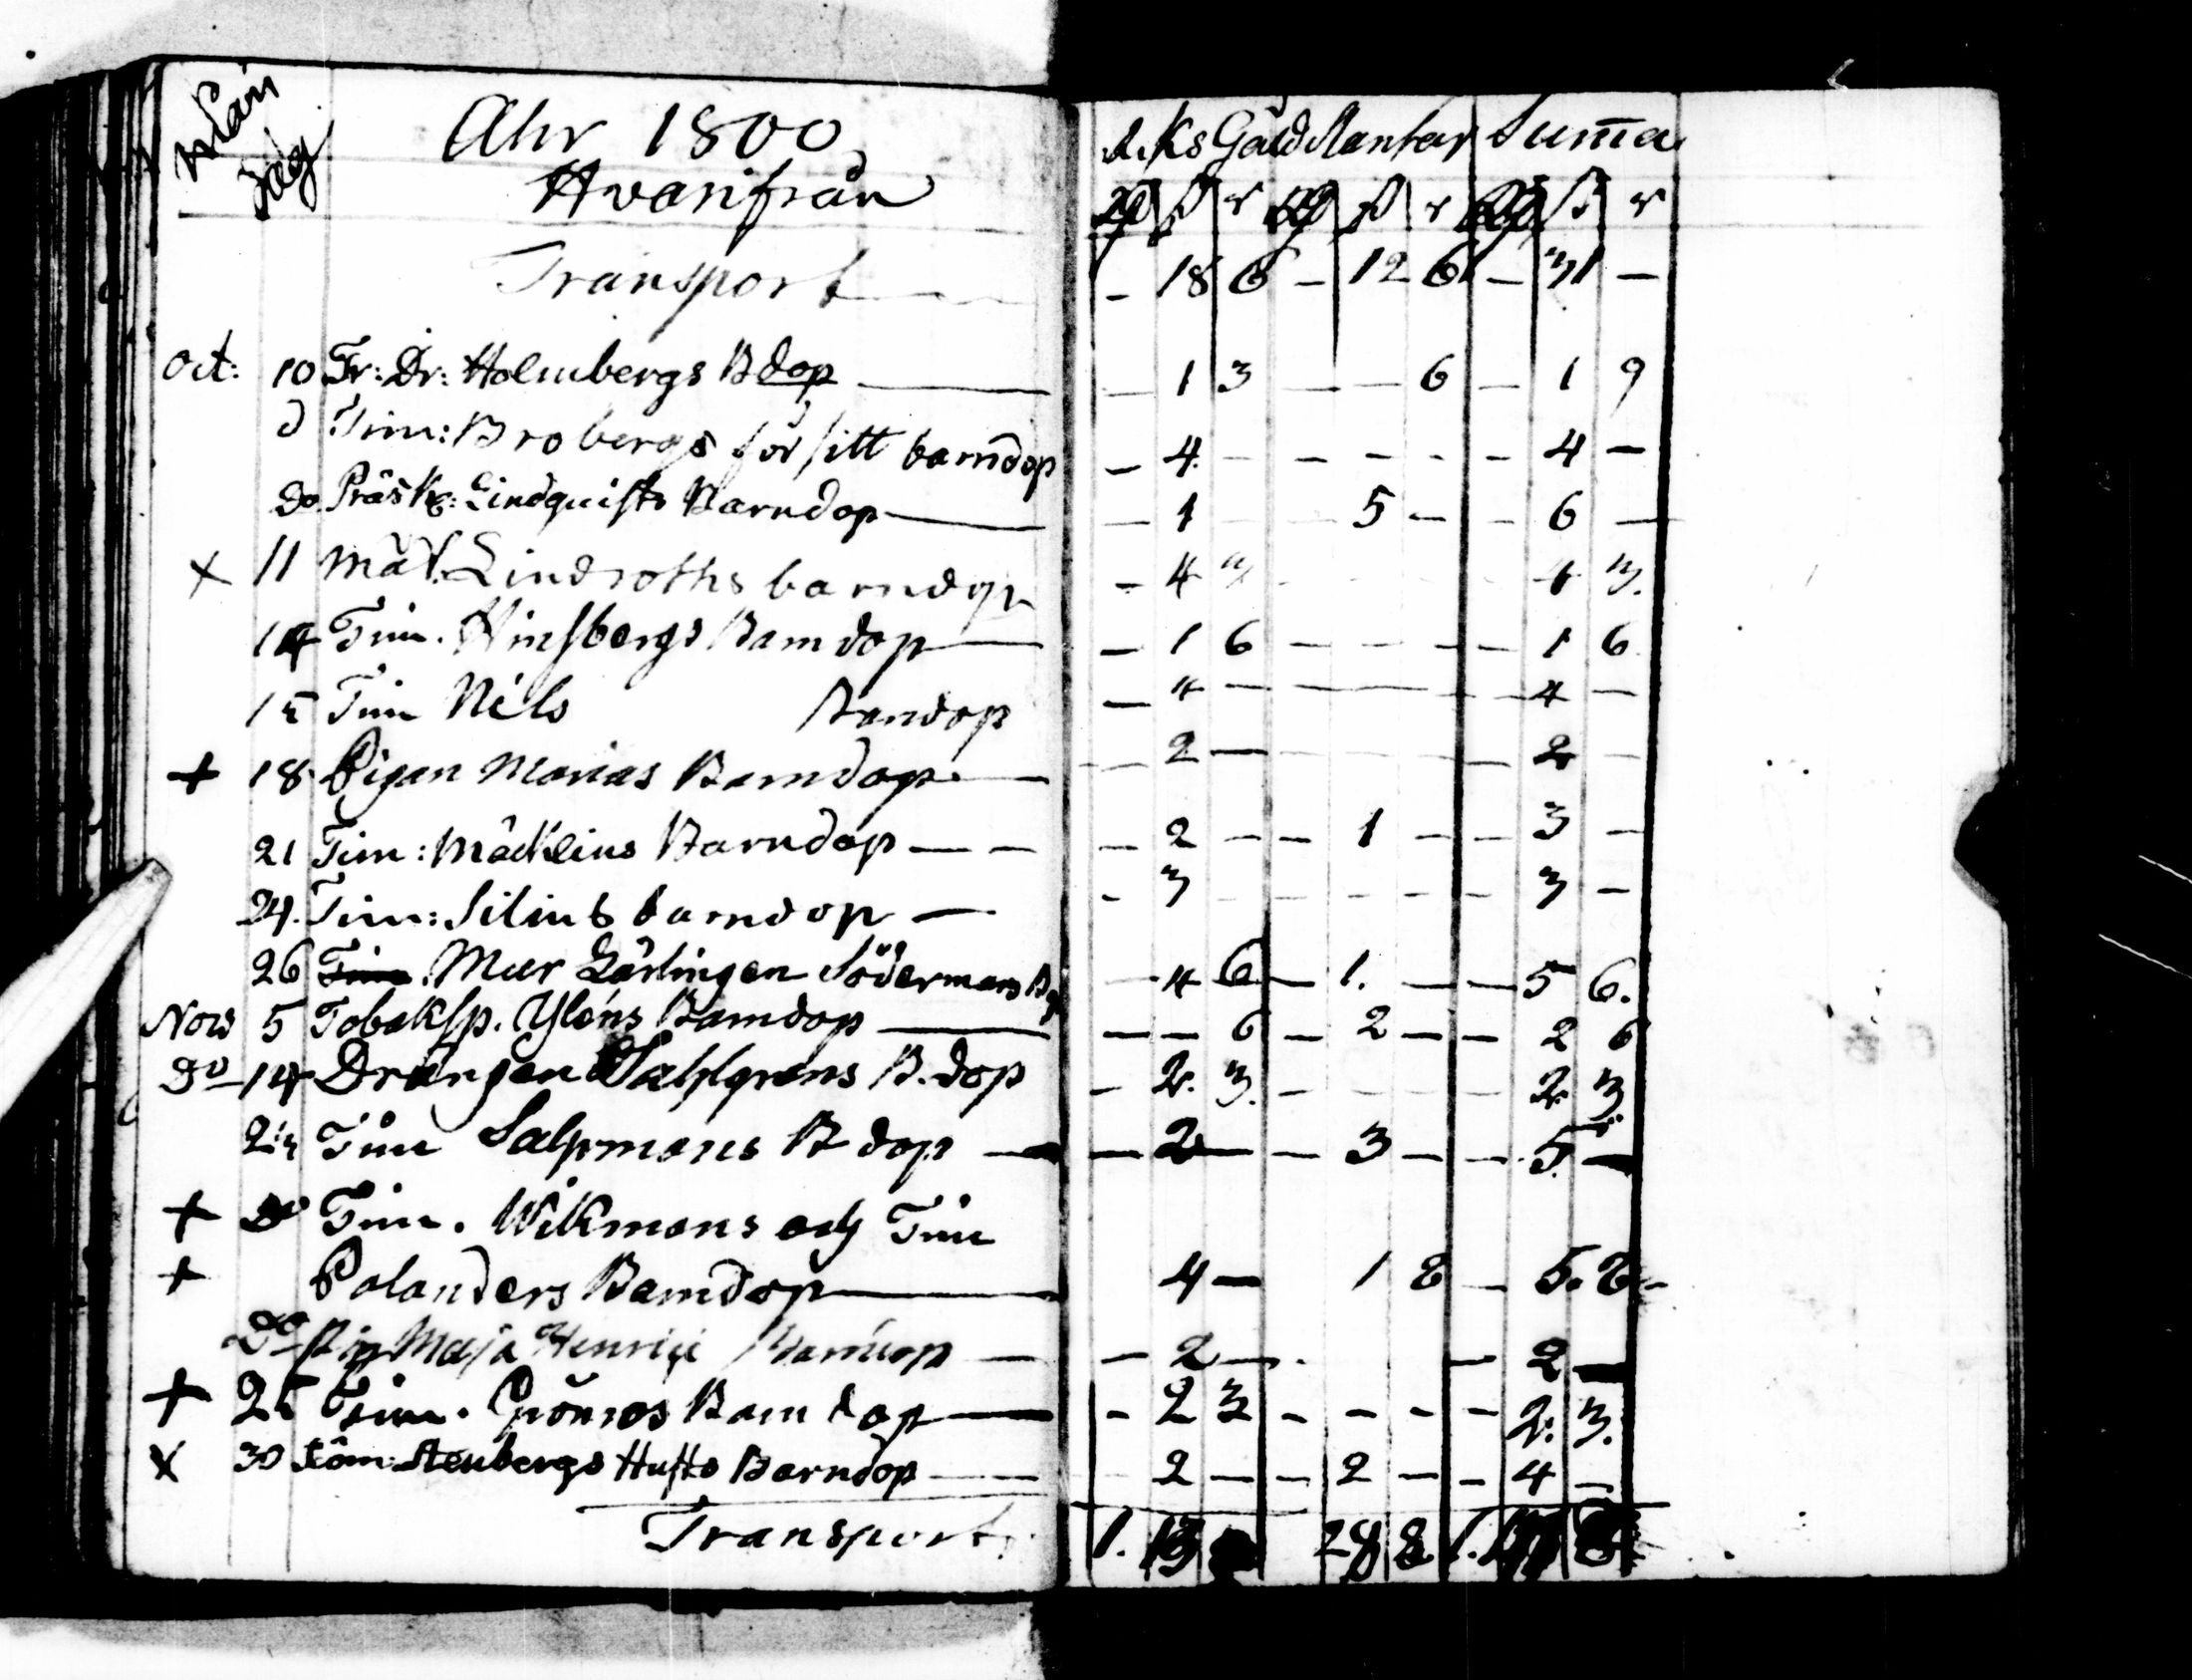 Mån dag Ahr 1800 R.Ks Gäld Slantar Suma
Hvarifrån ß r ß r ß r
Transport — 18 6 — 12 6 — 31 —
Oct: 10 Fr: Dr: Holmbergs Bdop — 1 3 — — 6 — 1 9
d Tim: Brobergs för sitt barndop — 4 — — — — — 4 —
do Präsk: Lindquists Barndop — 1 5 — — 6 —
x 11 Mät. Lindroths barndop — 4 3 4 3.
14 Tim. Hinsbergs Barndop — 1 6 — — — — 1 6
15 Tim Nils Barndop — 4 — — — — — 4 —
+ 18 Pigan Marias Barndop — 2 — — — — — 2 —
21 Tim: Mäcklins Barndop — — — 2 — — 1 — — 3 —
24. Tim: Silius barndop — - 3 — — — — — 3 —
26 Mur Lärlingen Södermans B — 4 6 — 1. — — 5 6.
Nov 5 Tobaksp. Yléns Barndop — — 6 — 2 — — 2 6
Do 14 Drängen Sahlgrens B. dop — 2. 3. — — — — 2 3
23 Tim Salpmans B dop — — 2 — — 3 — — 5 —
+ Do Tim. Wikmans och Tim
+ Polanders Barndop 4 — 1 8 — 5. 8 —
Do Pig Maja Henrici Barndop — — 2 — — 2 —
+ 25 Tim. Grönros Barn dop — — 2 3 — — — — 2. 3.
x 30 Stenbergs Hustrs Barndop — 2 — — 2 — — 4 —
Transport 1. 13 28 8 1.